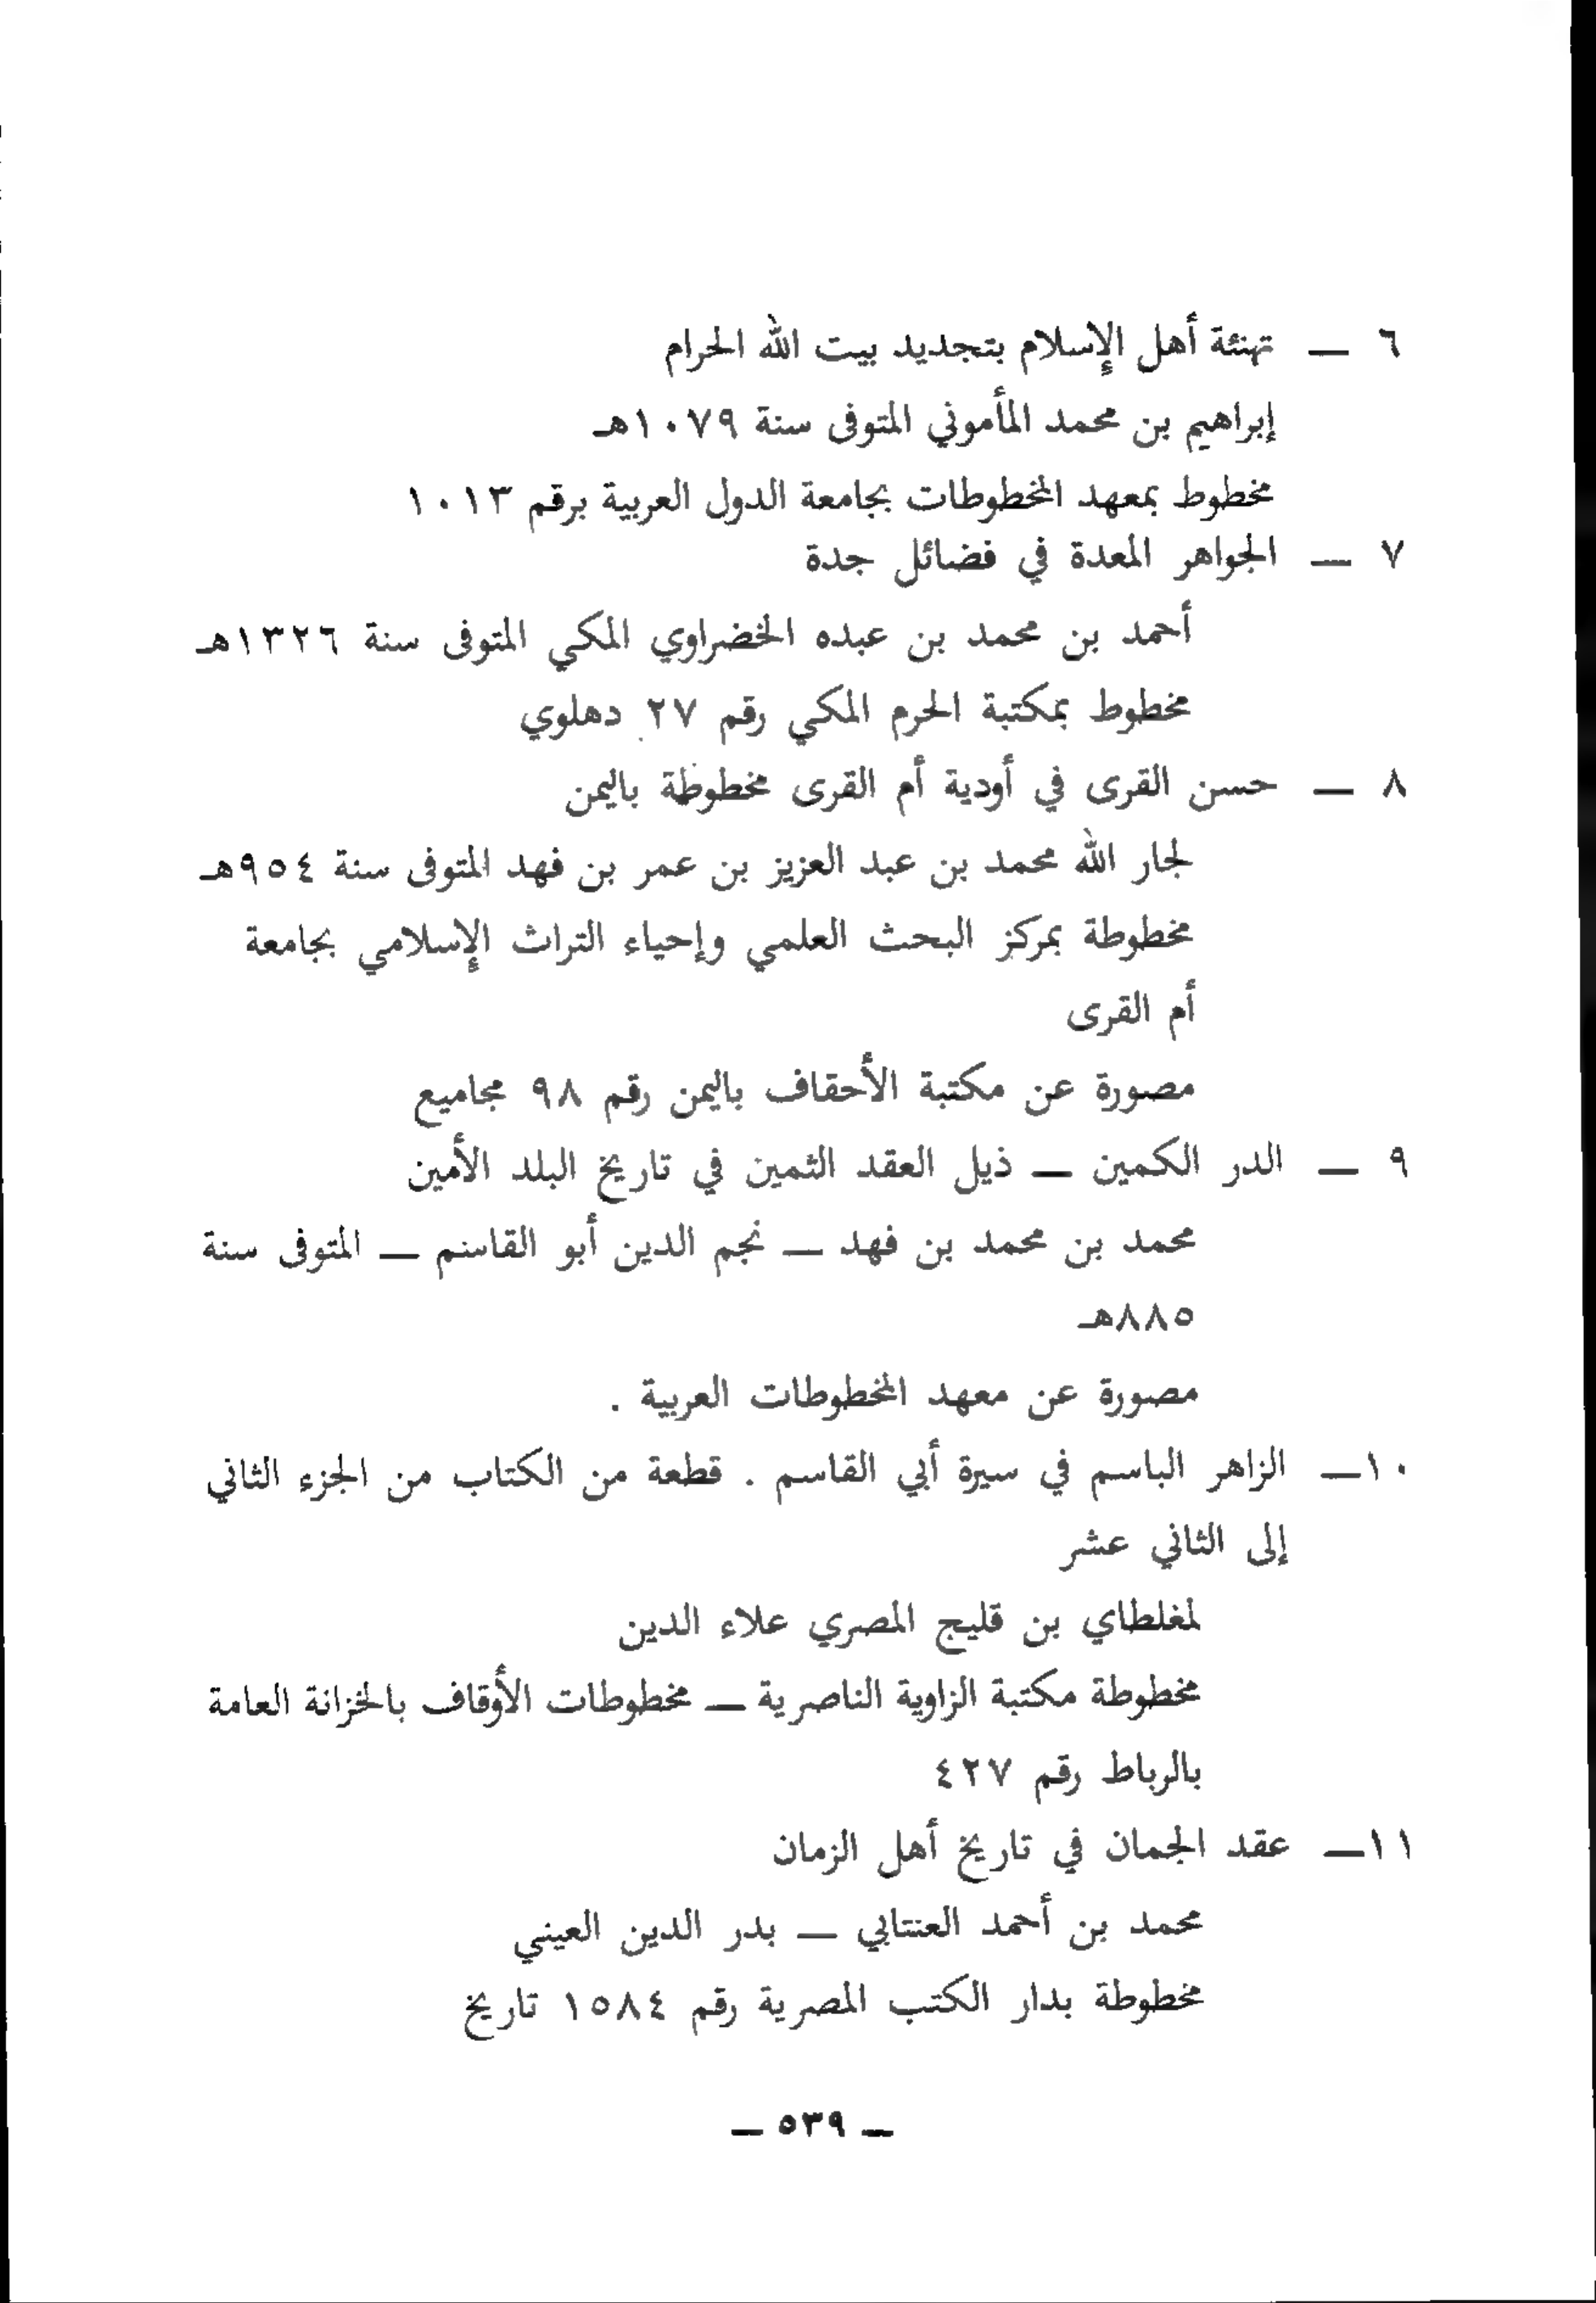 ٦ — تهنئة أهل الإسلام بتجديد بيت الله الحرام
إبراهيم بن محمد المأموني المتوفى سنة ١٠٧٩هـ
مخطوط بمعهد المخطوطات بجامعة الدول العربية برقم ١٠١٣
٧ — الجواهر المعدة في فضائل جدة
أحمد بن محمد بن عبده الخضراوي المكي المتوفى سنة ١٣٢٦هـ
مخطوط بمكتبة الحرم المكي رقم ٢٧ دهلوي
٨ — حسن القرى في أودية أم القرى مخطوطة باليمن
لجار الله محمد بن عبد العزيز بن عمر بن فهد المتوفى سنة ٩٥٤هـ
مخطوطة بمركز البحث العلمي وإحياء التراث الإسلامي بجامعة
أم القرى
مصورة عن مكتبة الأحقاف باليمن رقم ٩٨ مجاميع
٩ — الدر الكمين — ذيل العقد الثمين في تاريخ البلد الأمين
محمد بن محمد بن فهد — نجم الدين أبو القاسم — المتوفى سنة
٨٨٥هـ
مصورة عن معهد المخطوطات العربية .
١٠— الزاهر الباسم في سيرة أبي القاسم . قطعة من الكتاب من الجزء الثاني
إلى الثاني عشر
لمغلطاي بن قليج المصري علاء الدين
مخطوطة مكتبة الزاوية الناصرية — مخطوطات الأوقاف بالخزانة العامة
بالرباط رقم ٤٢٧
١١— عقد الجمان في تاريخ أهل الزمان
محمد بن أحمد العنتابي — بدر الدين العيني
مخطوطة بدار الكتب المصرية رقم ١٥٨٤ تاريخ
— ٥٣٩ —